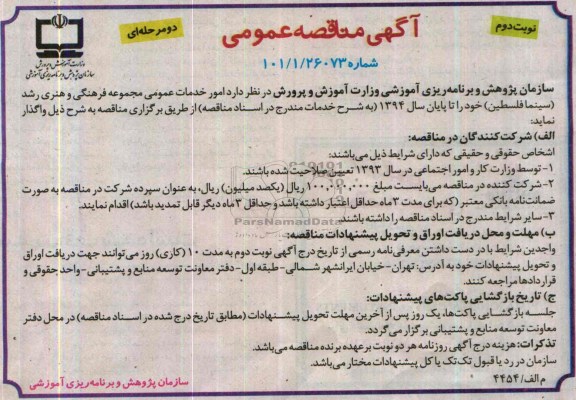 نوبت دوم
آگهی مناقصه عمومی
دو مرحله‌ای
شماره ۱۰۱/۱/۲۶۰۷۳
وزارت آموزش و پرورش
سازمان پژوهش و برنامه‌ریزی آموزشی
سازمان پژوهش و برنامه‌ریزی آموزشی وزارت آموزش و پرورش در نظر دارد امور خدمات عمومی مجموعه فرهنگی و هنری رشد
(سینما فلسطین) خود را تا پایان سال ۱۳۹۴ (به شرح خدمات مندرج در اسناد مناقصه) از طریق برگزاری مناقصه به شرح ذیل واگذار
نماید:
الف) شرکت‌کنندگان در مناقصه:
اشخاص حقوقی و حقیقی که دارای شرایط ذیل می‌باشند:
۱- توسط وزارت کار و امور اجتماعی در سال ۱۳۹۳ تعیین صلاحیت شده باشند.
۲- شرکت کننده در مناقصه می‌بایست مبلغ ۱۰۰,۰۰۰,۰۰۰ ریال (یکصد میلیون) ریال، به عنوان سپرده شرکت در مناقصه به صورت
ضمانت‌نامه بانکی معتبر (که برای مدت ۳ ماه حداقل اعتبار داشته باشد و حداقل ۳ ماه دیگر قابل تمدید باشد) اقدام نمایند.
۳- سایر شرایط مندرج در اسناد مناقصه را داشته باشند.
ParsNamadData
ب) مهلت و محل دریافت اوراق و تحویل پیشنهادات مناقصه:
واجدین شرایط با در دست داشتن معرفی‌نامه رسمی از تاریخ درج آگهی نوبت دوم به مدت ۱۰ (کاری) روز می‌توانند جهت دریافت اوراق
و تحویل پیشنهادات خود به آدرس: تهران- خیابان ایرانشهر شمالی- طبقه اول- دفتر معاونت توسعه منابع و پشتیبانی- واحد حقوقی و
قراردادها مراجعه کنند.
ج) تاریخ بازگشایی پاکت‌های پیشنهادات:
جلسه بازگشایی پاکت‌ها، یک روز پس از آخرین مهلت تحویل پیشنهادات (مطابق تاریخ درج شده در اسناد مناقصه) در محل دفتر
معاونت توسعه منابع و پشتیبانی برگزار می‌گردد.
تذکرات: هزینه درج آگهی روزنامه هر دو نوبت بر عهده برنده مناقصه می‌باشد.
سازمان در رد یا قبول تک‌تک یا کل پیشنهادات مختار می‌باشد.
م الف/ ۴۴۵۴
سازمان پژوهش و برنامه‌ریزی آموزشی